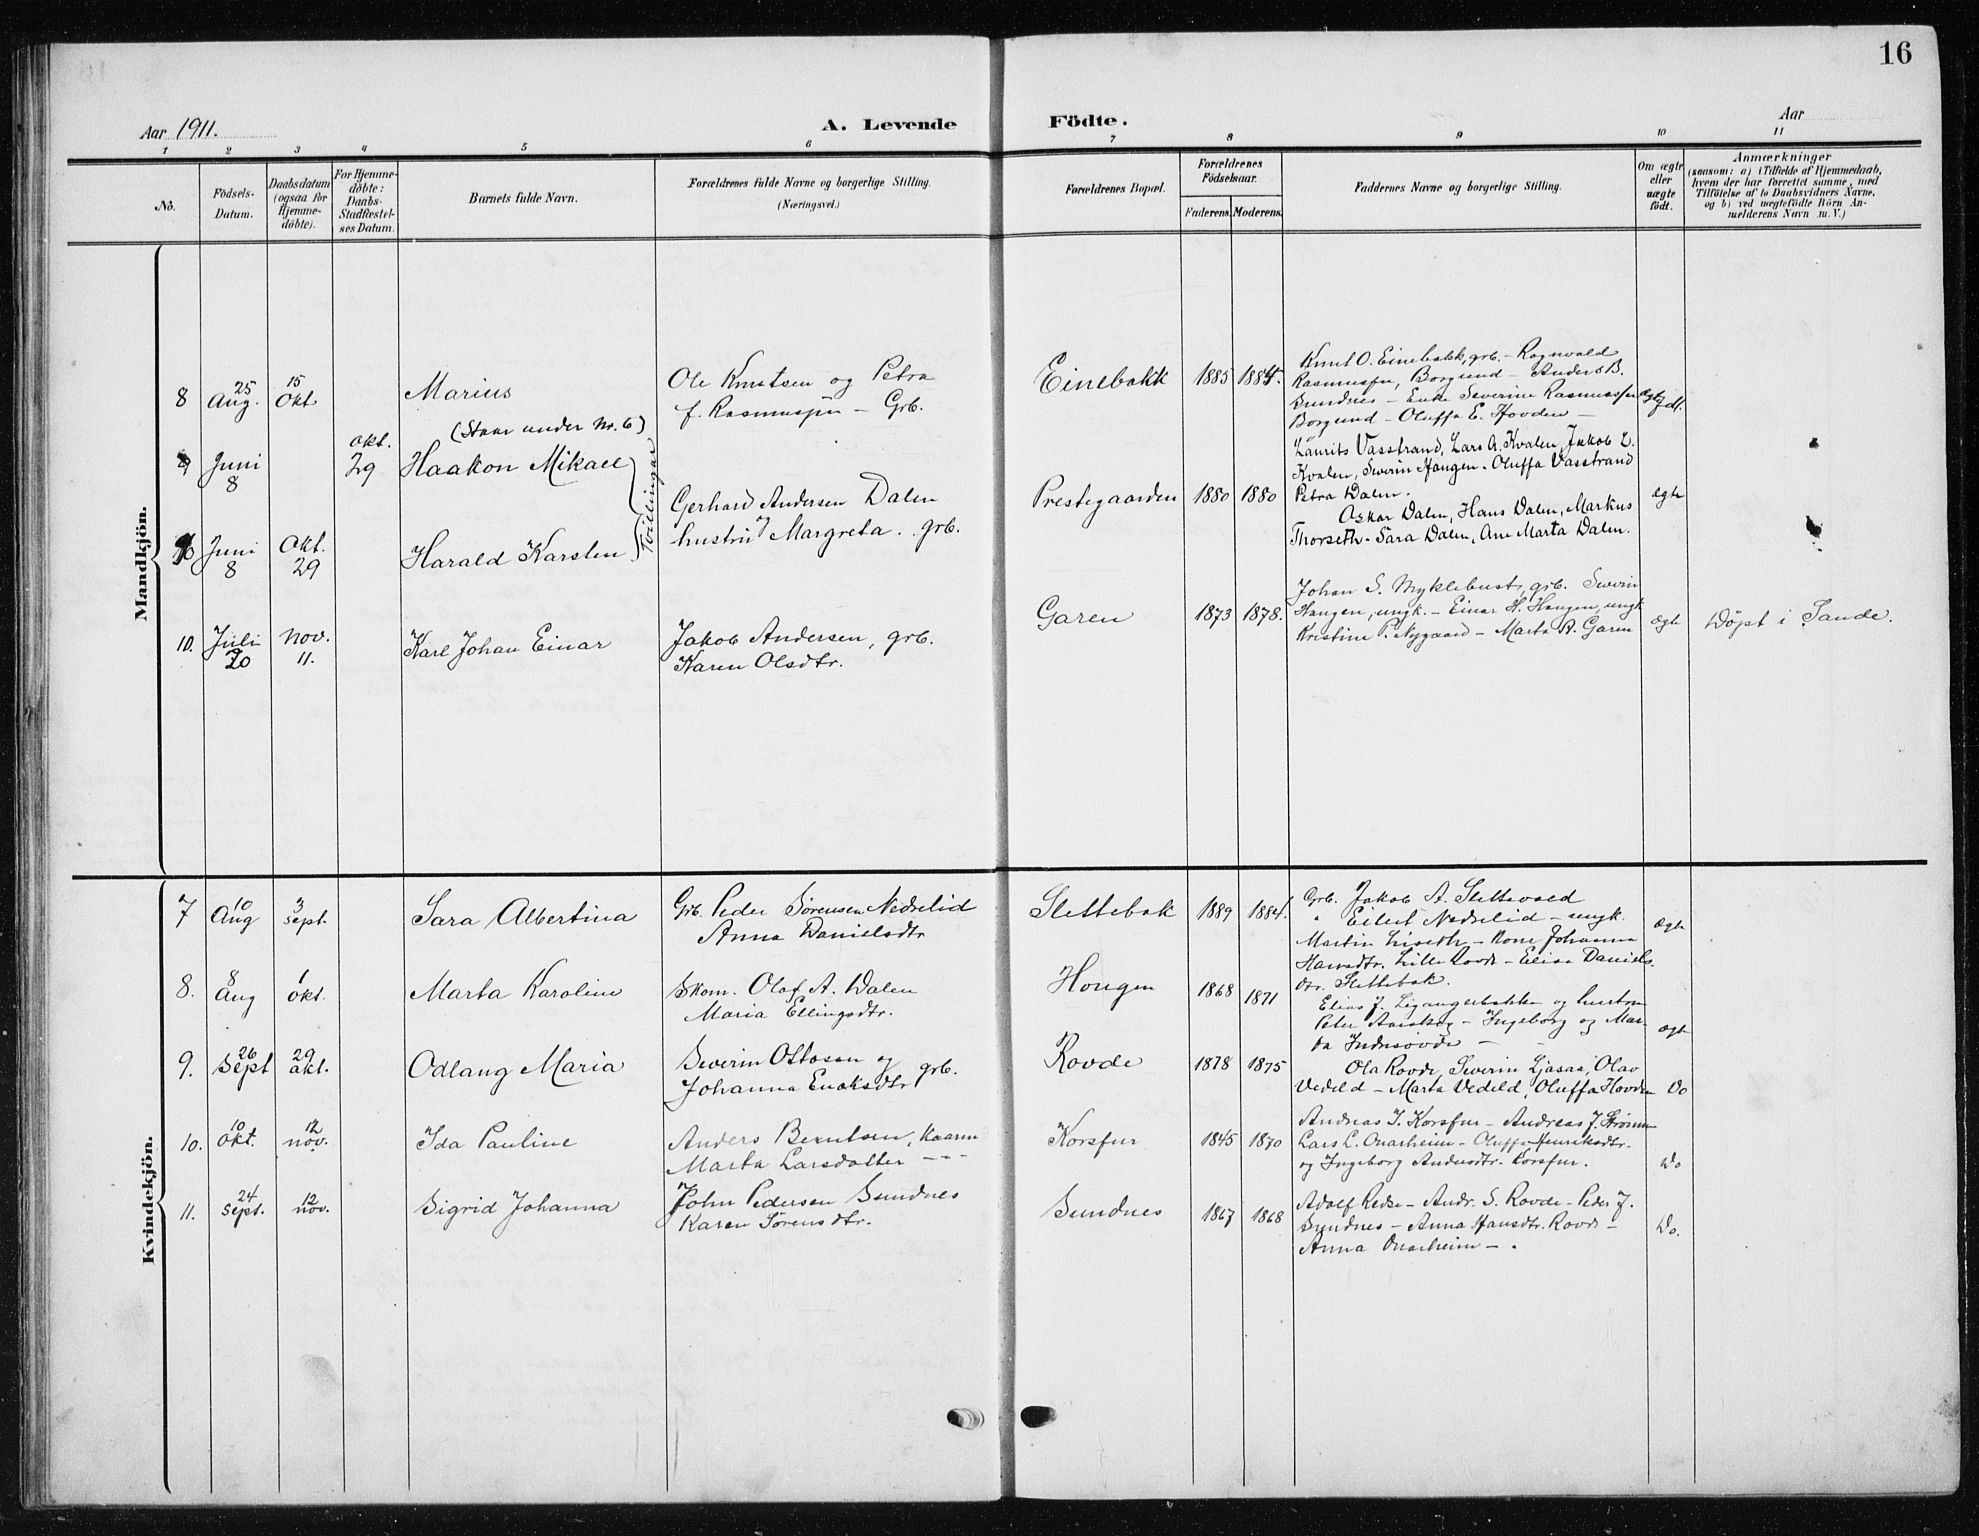 16
Aar 1911.
A. Levende Födte.
Aar
1 2 3 4 5 6 7 8 9 10 11
No.
Födsels-Datum.
Daabsdatum (ogsaa for Hjemme-döbte).
For Hjemme-döbte: Daabs-Stadfæstel-ses Datum.
Barnets fulde Navn.
Forældrenes fulde Navne og borgerlige Stilling.
(Næringsvei.)
Forældrenes Bopæl.
Forældrenes Födselsaar.
Faderens. Moderens.
Faddernes Navne og borgerlige Stilling.
Om ægte eller uægte födt.
Anmærkninger
(saasom: a) i Tilfælde af Hjemmedaab,
hvem der har forrettet samme, med
Tilföielse af to Daabsvidners Navne.
og b) ved uægtefödte Börn An-
melderens Navn m. V.)
Mandkjön.
8 25 Aug. 15 Okt Marius
(Staar under Nr. 6)
Ole Knutsen og Petra
f. Rasmussen – Grb.
Einebakk 1885 1884.
Knut O. Einebakk, grb. – Ragnvald
Rasmussen, Borgund – Anders B.
Sundnes – Enke Severine Rasmussen
Borgund – Oluffa E. Hovden –
9 Juni 8 okt. 29 Haakon Mikael
Tvillinger
10 Juni 8 Okt. 29 Harald Karsten
Gerhard Andersen Dalen
hustru Margreta . grb.
Prestegaarden 1880 1880
Laurits Vasstrand, Lars A. Kvalen, Jakob L.
Kvalen, Severin Haugen. Oluffa Vasstrand
Petra Dalen.
Oskar Dalen, Hans Dalen, Markus
Thorseth – Sara Dalen, Ane Marta Dalen.
ægte
10. Juli 20 Nov. 11. Karl Johan Einar
Jakob Andersen, grb.
Karen Olsdtr.
Garen 1873 1878.
Johan S. Myklebust, grb. Severin
Haugen, ungk. – Einar H. Haugen, ungk
Kristine P. Nygaard – Marta A. Garen
ægte
Døpt i Sande.
Kvindekjön.
7 10 Aug 3 sept. Sara Albertina
Grb. Peder Sørensen Nedrelid
Anna Danielsdtr
Slettebak 1889 1884.
Grb. Jakob A. Slettevold
" Eilert Nedrelid – ungk.
Martin Liseth – Kone Johanna
Hansdtr. Lille Rovde – Elise Daniels-
dtr. Slettebak.
ægte
8. 8 Aug 1 okt. Marta Karoline
Skom. Olaf A. Dalen
Maria Ellingsdtr.
Hougen 1868 1871
Elias J. Ligangerbakken og hustru
Peter Aarskog – Ingeborg og Mar-
ta Indresovde –
ægte
9. 26 Sept 29 okt. Odlaug Maria
Severin Ottosen og
Johanna Enoksdtr grb.
Rovde 1878 1875
Ola Rovde, Severin Ljosaa, Olav
Vedeld – Marta Vedeld, Oluffa Hovden
Do
10. 10 Okt. 12 nov. Ida Pauline
Anders Berntsen, Kaarm
Marta Larsdatter – – –
Korsfur 1845 1870
Andreas I. Korsfur – Andreas J. Strømm
Lars L. Onarheim – Oluffa Henriksdtr.
og Ingeborg Andersdtr. Korsfur.
Do
11. 24 Sept. 12 nov. Sigrid Johanna
John Pedersen Sundnes
Karen Sørensdtr.
Sundnes 1867 1868
Adolf Redse – Andr. S. Rovde – Peder J.
Sundnes – Anna Hansdtr. Rovde –
Anna Onarheim – .
Do.